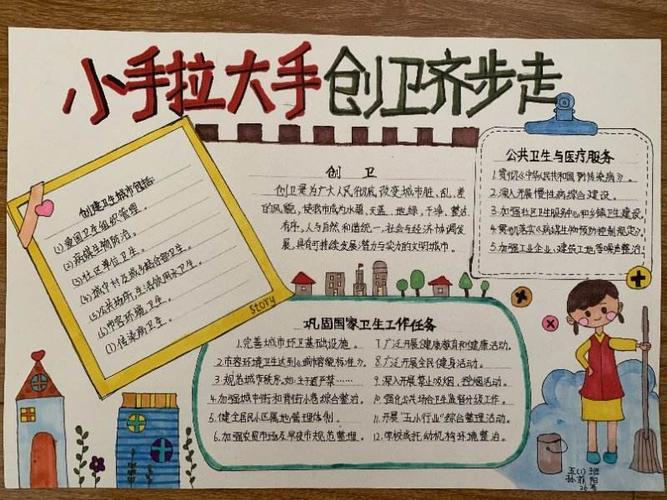 小手拉大手创卫齐步走
创建卫生城市包括:
(1)爱国卫生组织管理。
(2)病媒生物防治。
(3)社区单位卫生。
(4)城中村及城乡结合部卫生。
(5)公共场所,生活饮用水卫生。
(6)市容环境卫生。
(7)传染病卫生。
STORY
创 卫
创卫是为广大人民彻底改变城市脏,乱,差
的风貌,使我市成为水碧,天蓝,地绿,干净,整洁
有序,人与自然和谐统一,社会与经济协调发
展,具有可持续发展潜力与实力的文明城市。
公共卫生与医疗服务
1.贯彻《中华人民共和国 传染病》。
2.深入开展慢性病综合建设。
3.加强社区卫生服务中心和乡镇卫生建设。
4.贯彻落实《病媒生物预防控制规定》。
5.加强工业企业、建筑工地等噪声整治。
巩固国家卫生工作任务
1.完善城市环卫基础设施。
2.市容环境卫生达到《 标准》。
3.规范城市秩序,如:生于严禁……
4.加强城中街和背街小巷综合整治。
5.健全居民小区属地管理体制。
6.加强农贸市场及早夜市规范整理。
7.广泛开展健康教育和健康活动。
8.广泛开展全民健身活动。
9.深入开展禁止吸烟、控烟活动。
10.强化公共场合卫生监督分级工作。
11.开展“五小行业”综合整理活动。
12.学校或托幼机构环境整治。
五(1)班
孙 阳
26号